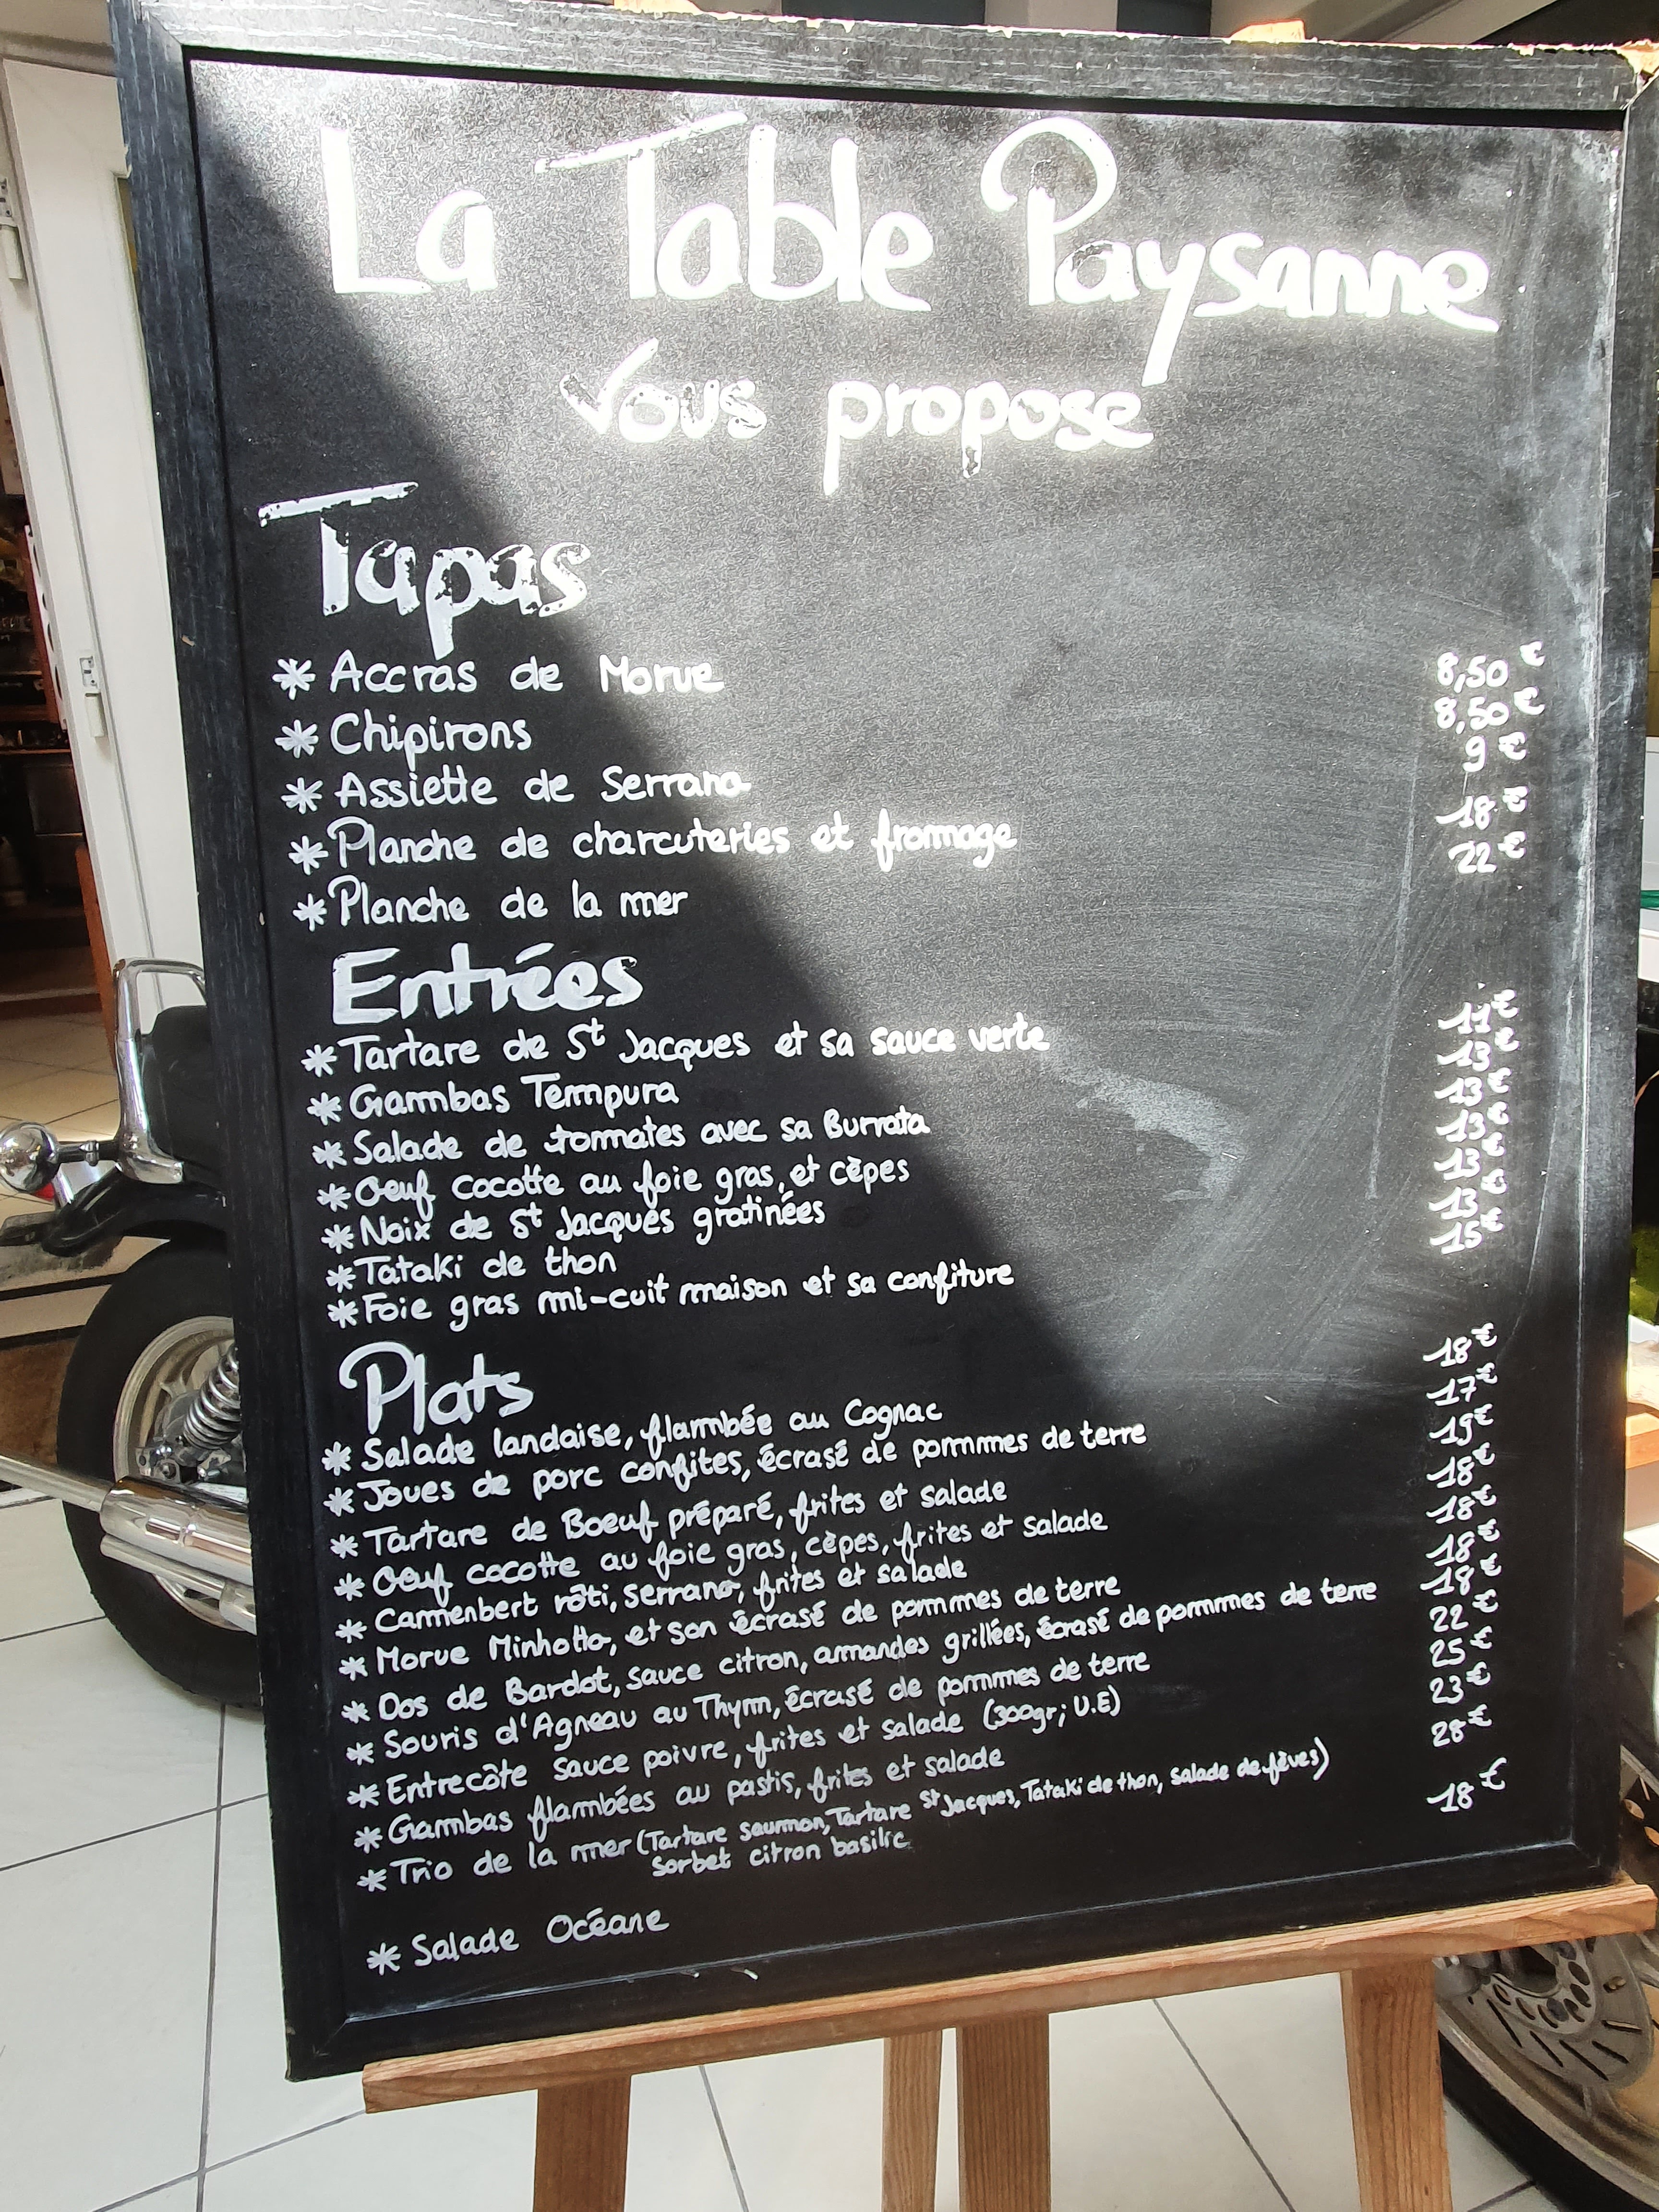 La Table Paysanne
Vous propose
Tapas
* Accras de Morue 8,50 €
* Chipirons 8,50 €
* Assiette de Serrano 9 €
* Planche de charcuteries et fromage 18 €
* Planche de la mer 22 €
Entrées
* Tartare de St Jacques et sa sauce verte 11 €
* Gambas Tempura 13 €
* Salade de tomates avec sa Burrata 13 €
* Oeuf cocotte au foie gras, et cèpes 13 €
* Noix de St Jacques gratinées 13 €
* Tataki de thon 13 €
* Foie gras mi-cuit maison et sa confiture 15 €
Plats
* Salade landaise, flambée au Cognac 18 €
* Joues de porc confites, écrasé de pommes de terre 17 €
* Tartare de Boeuf préparé, frites et salade 19 €
* Oeuf cocotte au foie gras, cèpes, frites et salade 18 €
* Camenbert rôti, serrano, frites et salade 18 €
* Morue Minhotto, et son écrasé de pommes de terre 18 €
* Dos de Bardot, sauce citron, amandes grillées, écrasé de pommes de terre 18 €
* Souris d'Agneau au Thym, écrasé de pommes de terre 22 €
* Entrecôte sauce poivre, frites et salade (300gr; U.E) 25 €
* Gambas flambées au pastis, frites et salade 23 €
* Trio de la mer (Tartare saumon, Tartare St Jacques, Tataki de thon, salade de fèves) 28 €
sorbet citron basilic
* Salade Océane 18 €